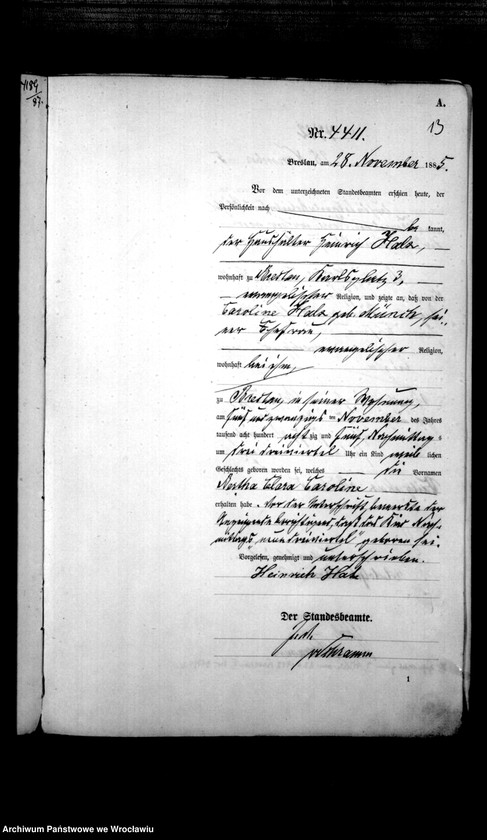 A.
13
Nr. 4411.
Breslau, am 28. November 1885.
Vor dem unterzeichneten Standesbeamten erschien heute, der
Persönlichkeit nach
be kannt,
der Haushälter Heinrich Hala,
wohnhaft zu Breslau, Karlsplatz 3,
evangelischer Religion, und zeigte an, daß von der
Caroline Hala geb. Münch, sei-
ner Ehefrau,
evangelischer Religion,
wohnhaft bei ihm,
zu Breslau, in seiner Wohnung,
am fünf und zwanzigsten November des Jahres
tausend acht hundert acht zig und fünf, Nachmittags
um drei dreiviertel Uhr ein Kind weib lichen
Geschlechts geboren worden sei, welches die Vornamen
Bertha Clara Caroline
erhalten habe. Vor der Unterschrift bemerkte der
Anzeigende berichtigend, daß das Kind Nach-
mittags "neun dreiviertel" geboren sei.
Vorgelesen, genehmigt und unterschrieben.
Heinrich Hala
Der Standesbeamte.
Schramm
1
Archiwum Państwowe we Wrocławiu